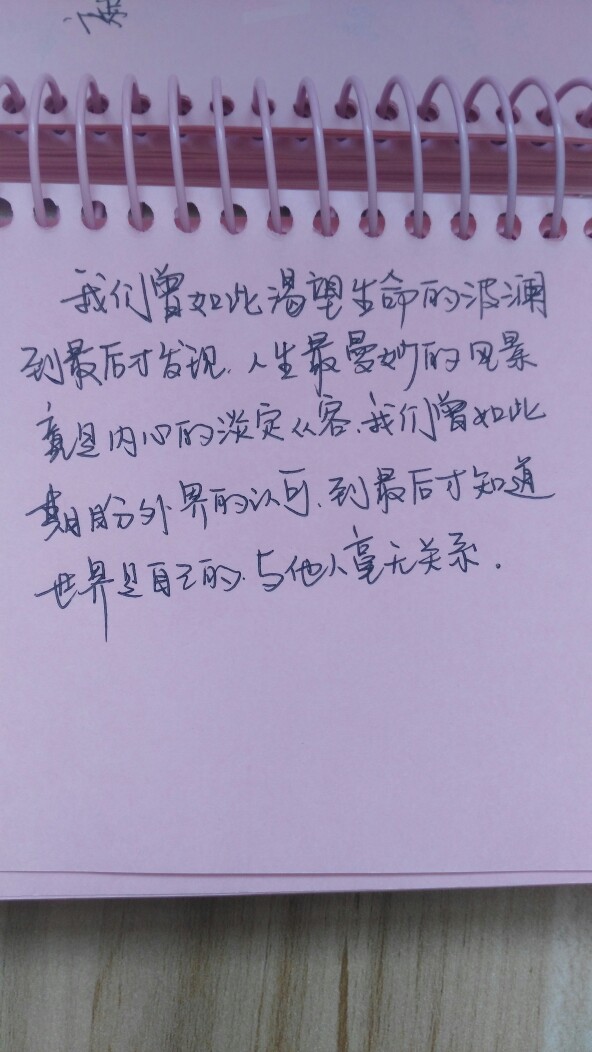 我们曾如此渴望生命的波澜
到最后才发现.人生最曼妙的风景
竟是内心的淡定从容.我们曾如此
期盼外界的认可.到最后才知道
世界是自己的.与他人毫无关系.